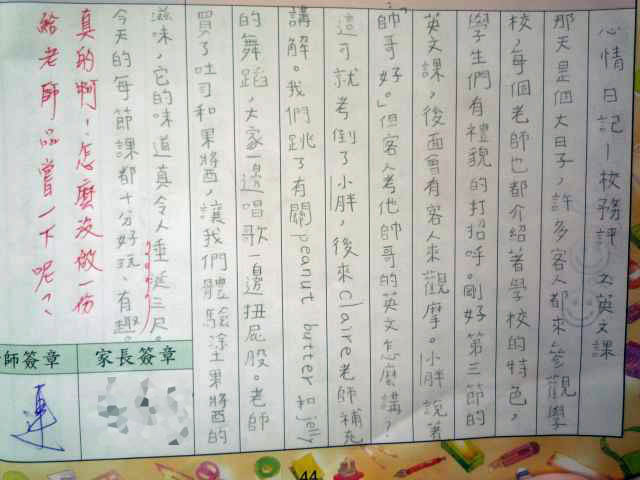 心情日記—校務評 之英文課
那天是個大日子，許多客人都來參觀學
校，每個老師也都介紹著學校的特色，
學生們有禮貌的打招呼。剛好第三節的
英文課，後面會有客人來觀摩。小胖說著
「帥哥好。」但客人考他帥哥的英文怎麼講？
這可就考倒了小胖，後來claire老師補充
講解。我們跳了有關peanut butter和jelly
的舞蹈，大家一邊唱歌一邊扭屁股。老師
買了吐司和果醬，讓我們體驗塗果醬的
滋味，它的味道真令人垂延三尺。
今天的每節課都十分好玩、有趣。
真的啊！怎麼沒做一份
給老師品嘗一下呢？
師簽章
家長簽章
44